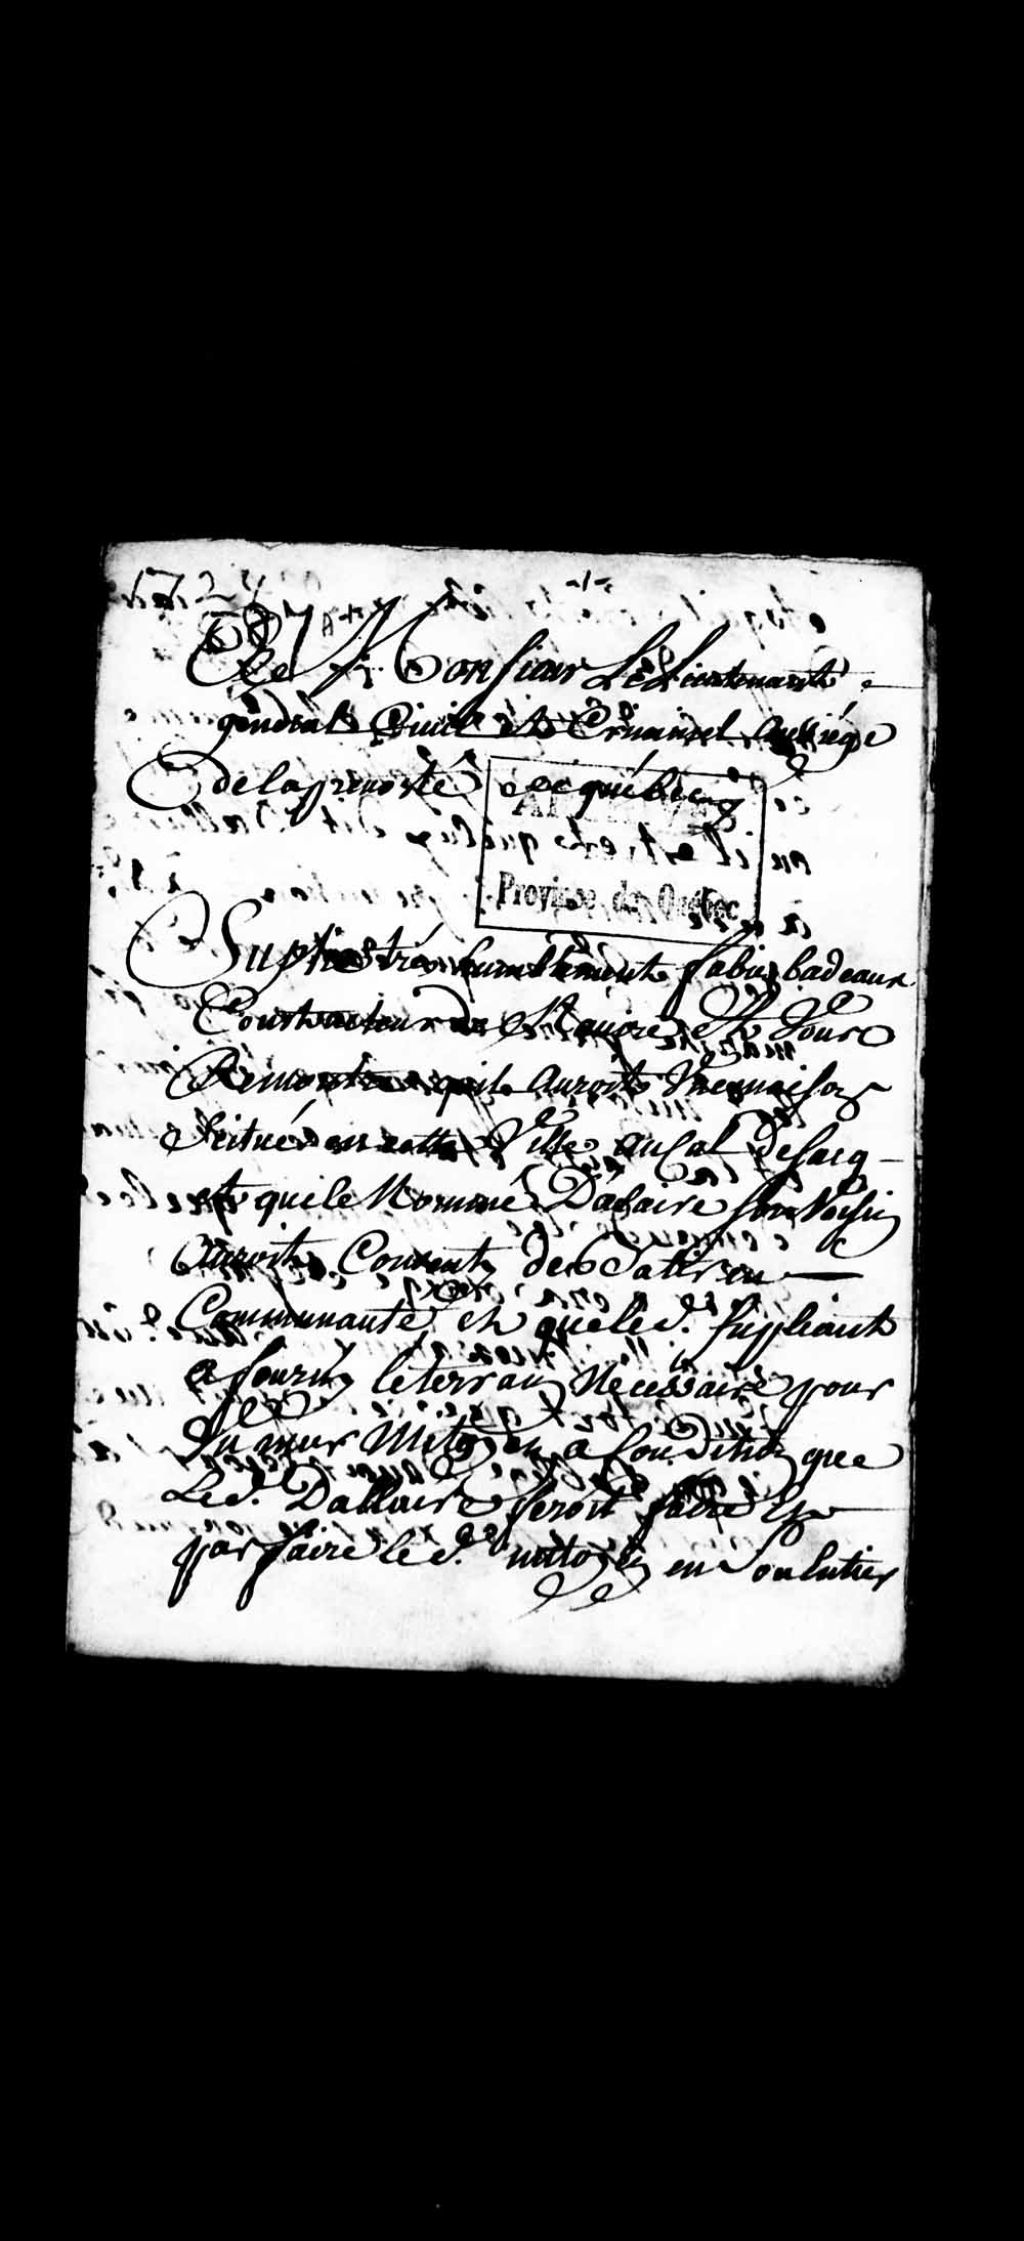 A Monsieur Le Lieutenant
général Civil et Criminel au siége
de la prevosté de québecq
Province de Québec
Suplie trés humblement fabien badeaux
Constructeur de Navire et Vous
Remontre quil auroit Une maison
scituée en cette Ville au Cal de sacq
et que le Nommé Dalaire son Voisin
auroit Convenu de batir en
Communauté et que led. supliant
a fourny le terrain Necessaire pour
du mur Mitoyen a Condition que
Led. Dallaire feroit faire et
par faire led. mitoyen en son Entier